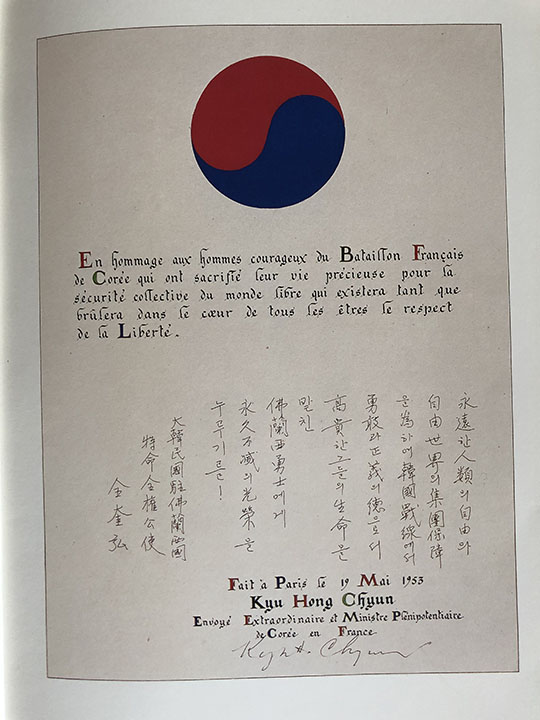 En hommage aux hommes courageux du Bataillon Français
de Corée qui ont sacrifié leur vie précieuse pour la
sécurité collective du monde libre qui existera tant que
brûlera dans le cœur de tous les êtres le respect
de la Liberté.
永遠한 人類의 自由와
自由世界의 集團保障
을 為하여 韓國戰線에서
勇敢과 正義의 德으로서
高貴한 그들의 生命을
받친
佛蘭西勇士에게
永久不滅의 光榮을
누루기를!
大韓民國駐佛蘭西國
特命全權公使
全奎弘
Fait à Paris le 19 Mai 1953
Kyu Hong Chyun
Envoyé Extraordinaire et Ministre Plénipotentiaire
de Corée en France
Kyu H. Chyun